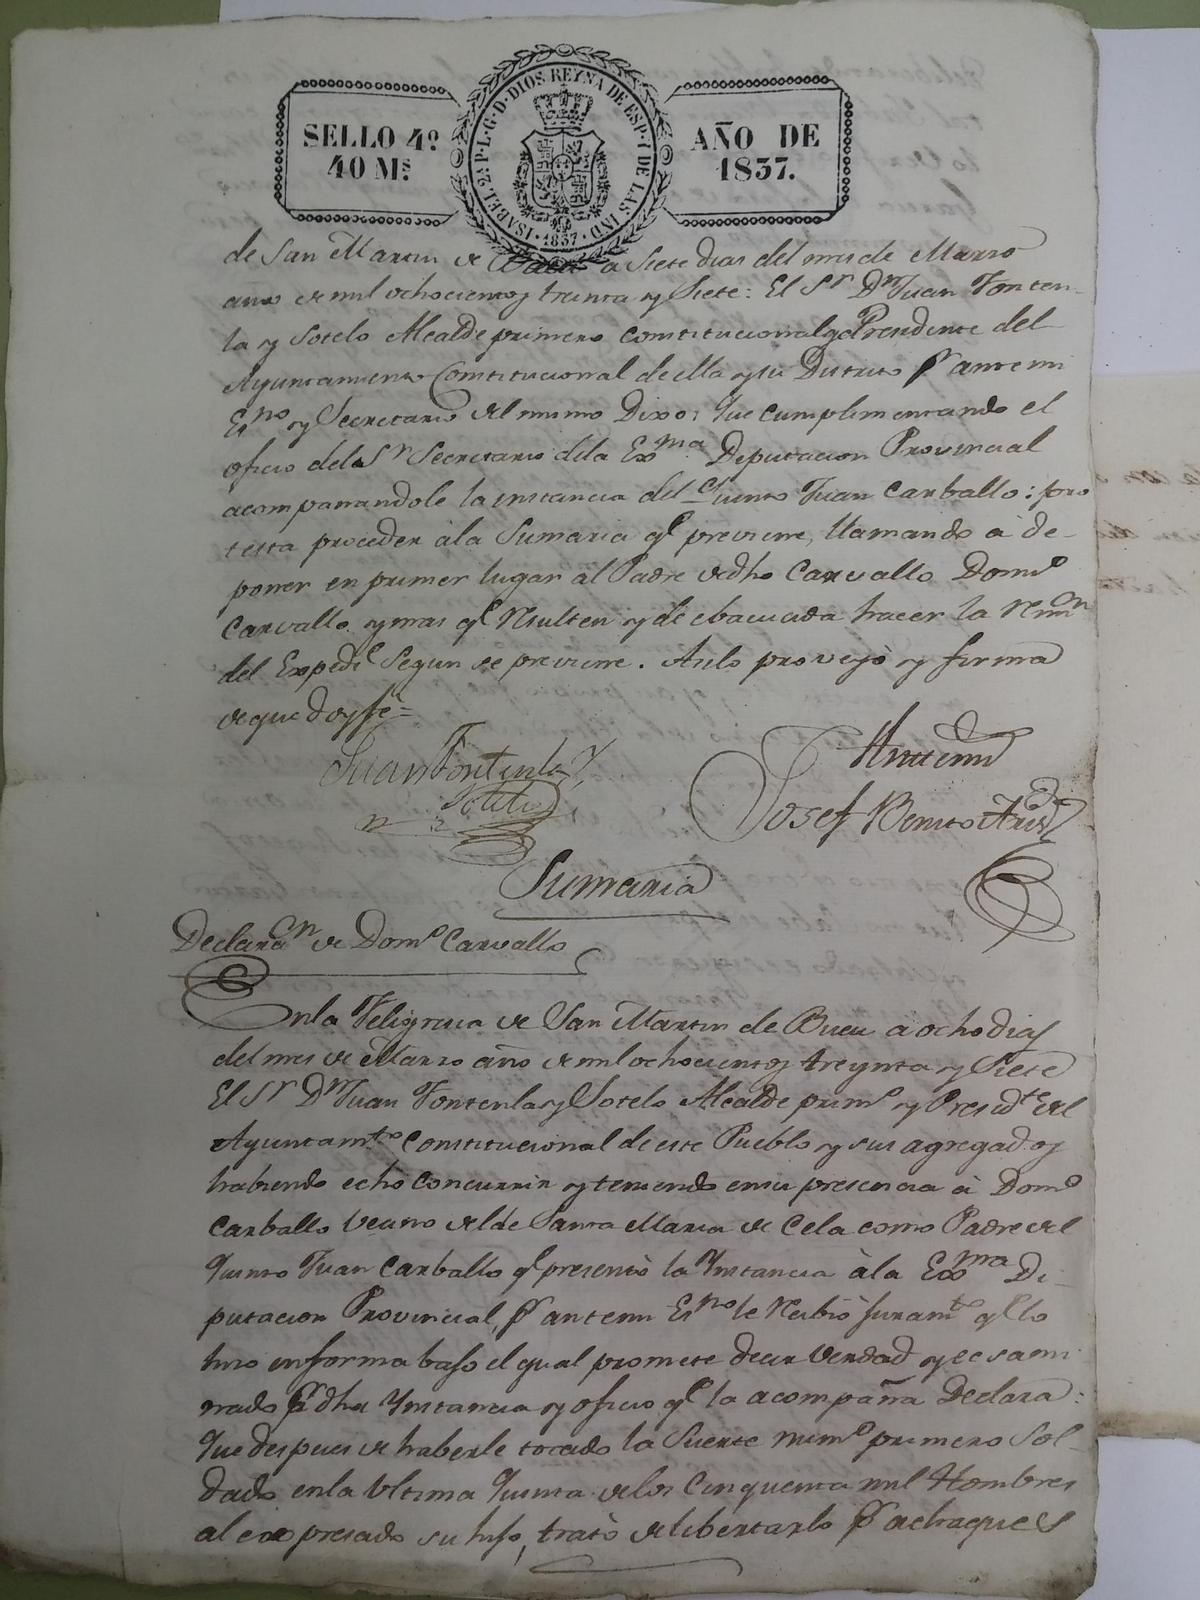 SELLO 4º
40 Ms.
ISABEL 2ª P. L. G. D. DIOS REYNA DE ESP. Y DE LAS IND.
· 1837 ·
AÑO DE
1837.
de San Martin de Bueu a Siete dias del mes de Marzo
año de mil ochocientos treinta y Siete: El Sr. Dn. Juan Fonten-
la y Sotelo Alcalde primero constitucional y Presidente del
Ayuntamiento Constitucional de ella y su Distrito pr. ante mi
Esno. y Secretario del mismo Dixo: Que cumplimentando el
oficio del Sr. Secretario dela Exma. Deputacion Provincial
acompañandole la instancia del Quinto Juan Carballo: pro
testa proceder à la Sumaria qe. previene, llamando à de-
poner en primer lugar al Padre de dho Carvallo Domo.
Carvallo y mas qe. resulten y de ebacuada hacer la remon.
del Expede. Segun se previene. Asilo proveyò y firma
de que doy fe =
Juan Fontenla y
Sotelo
Antemi
Josef Benito
Sumaria
Declaran. de Domo. Carvallo
Enla Feligresia de San Martin de Bueu a ocho dias
del mes de Marzo año de mil ochocientos treynta y Siete
El Sr. Dn. Juan Fontenla y Sotelo Alcalde primo. y Presidte. del
Ayuntamto. Constitucional de este Pueblo y sus agregados
habiendo echo concurrir y teniendo ensu presencia à Domo.
Carballo Vecino del de Santa Maria de Cela como Padre del
Quinto Juan Carballo qe. presentò la Ynstancia àla Exma. Di-
putacion Provincial, pr. antemi Esno. le recibiò juramto. qe. lo
hizo enforma bajo el qual promete decir verdad y ecsami
nado pr. dha Ynstancia y oficio qe. la acompaña Declara:
Que despues de haberle tocado la Suerte numo. primero Sol-
dado enla Ultima Quinta delos Cinquenta mil Hombres
al expresado su hijo, tratò de libertarlo pr. achaques